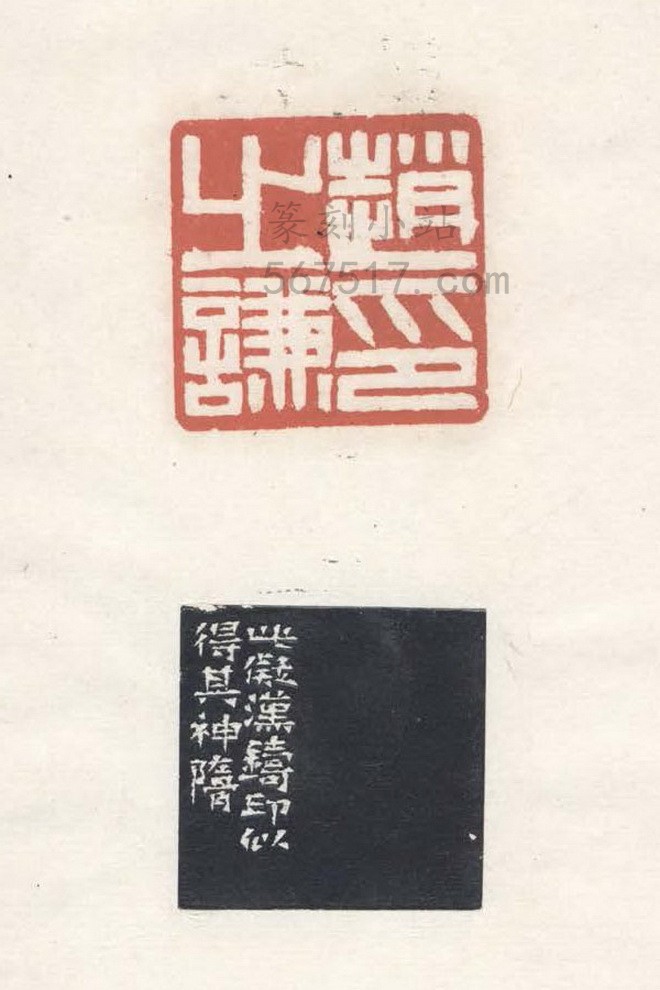 趙印
之謙
篆刻小站
567517.com
此儗漢鑄印似
得其神隋